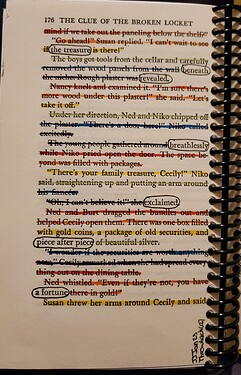 176 THE CLUE OF THE BROKEN LOCKET
mind if we take out the paneling below the shelf?"
"Go ahead!" Susan replied. "I can't wait to see
if the treasure is there!"
The boys got tools from the cellar and carefully
removed the wood panels from the wall beneath
the niche. Rough plaster was revealed.
Nancy knelt and examined it. "I'm sure there's
more wood under this plaster!" she said. "Let's
take it off."
Under her direction, Ned and Niko chipped off
the plaster. "There's a door here!" Niko called
excitedly.
The young people gathered around breathlessly
while Niko pried open the door. The space be-
yond was filled with packages.
"There's your family treasure, Cecily!" Niko
said, straightening up and putting an arm around
his fiancée.
"Oh, I can't believe it!" she exclaimed.
Ned and Burt dragged the bundles out and
helped Cecily open them. There was one box filled
with gold coins, a package of old securities, and
piece after piece of beautiful silver.
"I wonder if the securities are worth anything
now," Cecily murmured when she had spread every-
thing out on the dining table.
Ned whistled. "Even if they're not, you have
a fortune there in gold!"
Susan threw her arms around Cecily and said